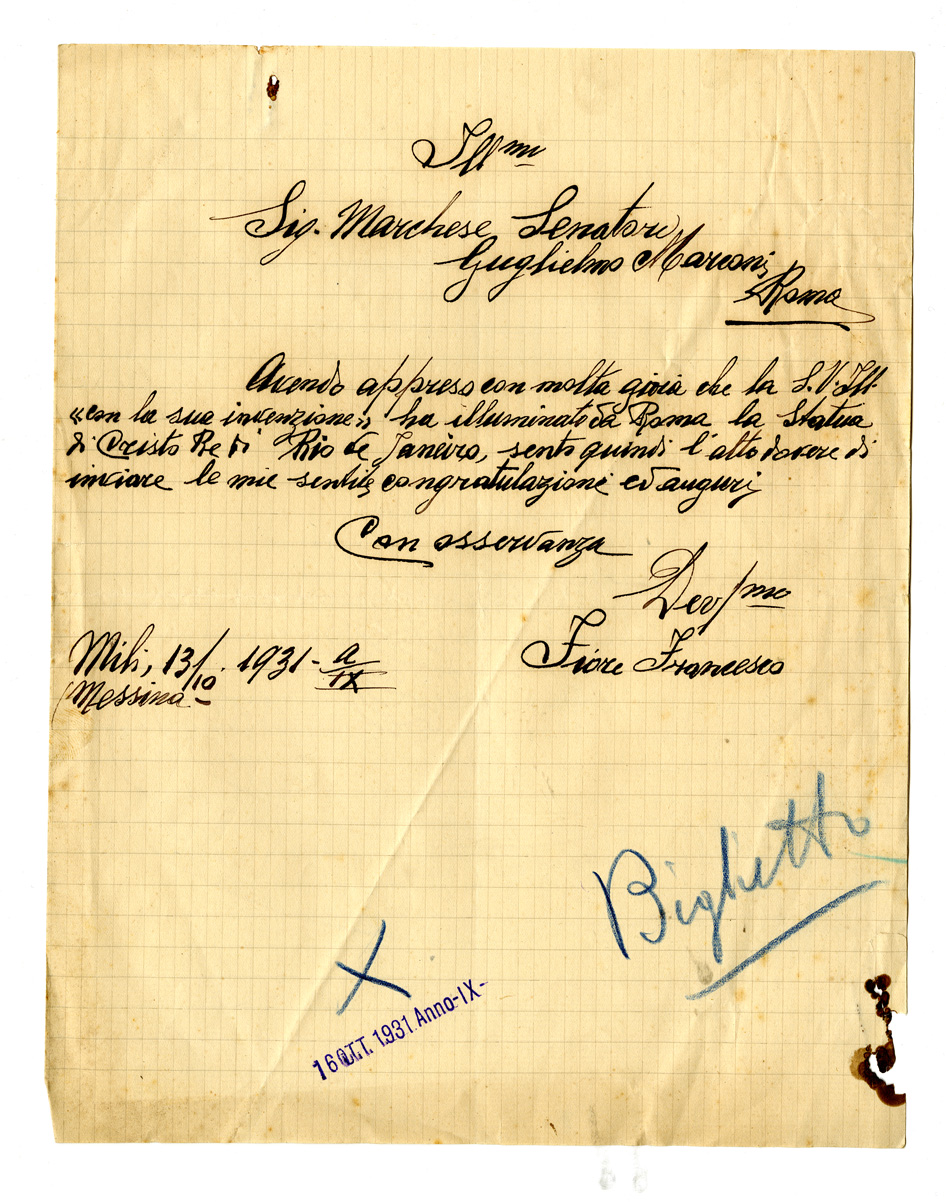 Ill.mo
Sig. Marchese Senatore
Guglielmo Marconi
Roma
Avendo appreso con molta gioia che la S.V. Ill.
«con la sua invenzione» ha illuminato da Roma la Statua
di Cristo Re di Rio de Janèiro, sento quindi l'alto dovere di
inviare le mie sentite congratulazioni ed auguri
Con osservanza
Dev/mo
Fiore Francesco
Mili, 13/10. 1931 - a/IX
(Messina -
Biglietto
X
16 OTT. 1931 Anno-IX-